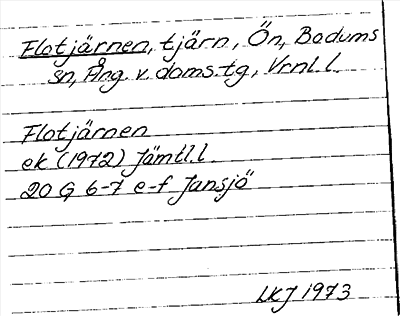 Flotjärnen, tjärn, Ön, Bodums
sn, Ång. v. doms.tg, Vrnl.l.
Flotjärnen
ek (1972) Jämtl.l.
20 G 6-7 e-f Jansjö
LKJ 1973